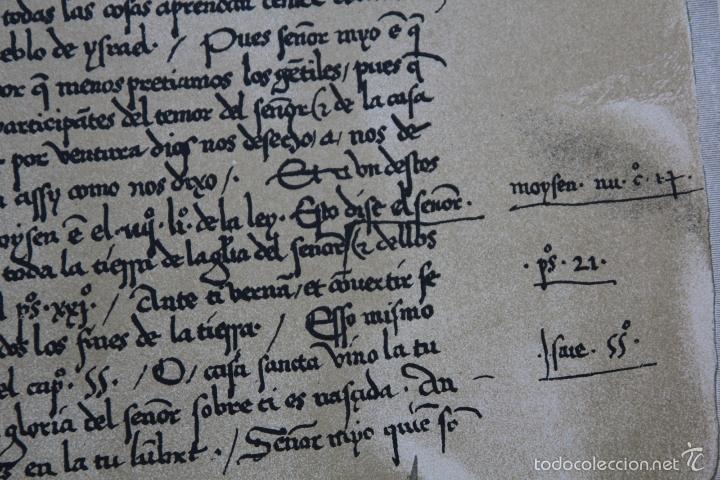 todas las cosas aprendan
eblo de ysrael · / Pues señor myo ẽ q̃
por q̃ menospreçiamos los gẽtiles / pues q̃
participãtes del temor del señor (τ de la casa
r por ventura dios nos desecho / a / nos de
assy como nos dixo / · Et un destos
moysen ẽ el · iiijº · liº · de la ley · Esto dise el señor ·
moysen · nu · cº · 17 ·
toda la tierra de la glia del señor (τ dellos
· pºs · 21 ·
l pºs · xxjº / Ante ti vernã / et cõvertir se
dos los fines de la tierra · / Esso mismo
el capº · 55 · / O / casa sancta vino la tu
· Jsaie · 55º ·
gloria del señor sobre ti es nasçida · An
en la tu lũbre · / Señor myo quiẽ sõ
todocoleccion.net